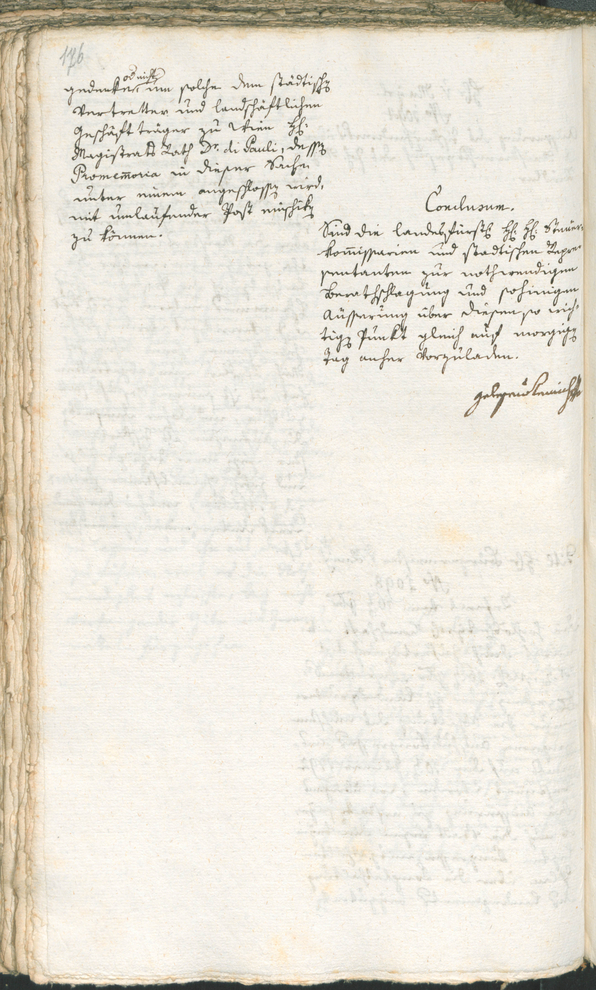 176
ob nicht
gedenket, um solche dem städtischen
Vertretter und landschäftlichen
Geschäftträger zu Wien H:
Magistrats Rath Dr. di Pauli, dessen
Promemoria in dieser Sache
unter einem angeschlossen wird,
mit umlaufender Post
zu können.
Conclusum.
Sind die landesfürstl. H: H: Steuer-
kom̅issarien und städtischen Reprae-
sentanten zur nothwendigen
Berathschlagung und sohinigen
Äusserung über diesen so wich-
tigen Punkt gleich auf morgigen
Tag anher vorzuladen.